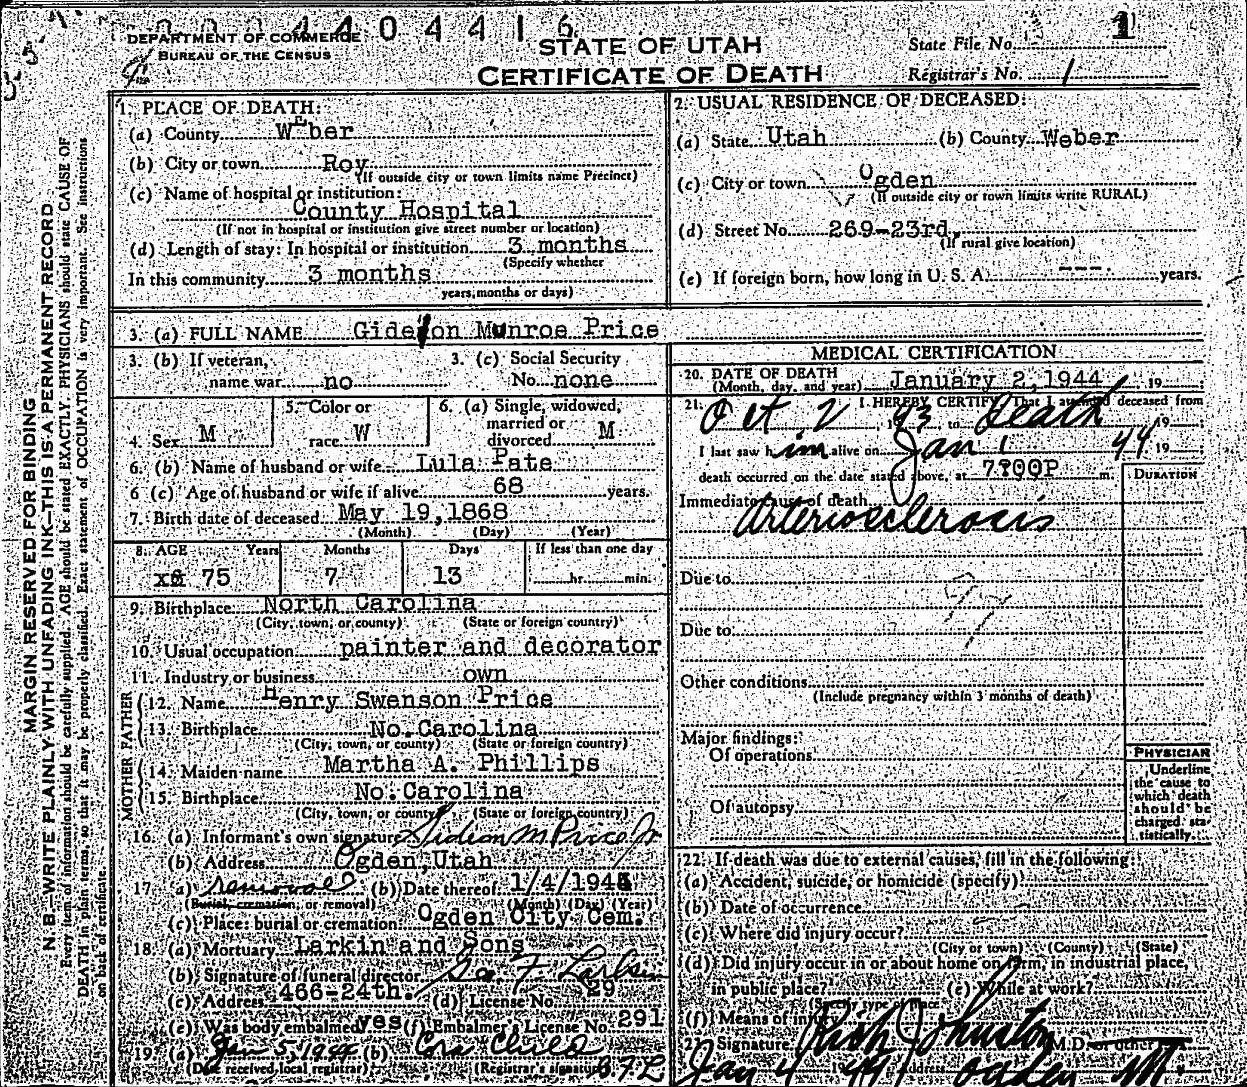 4404416
DEPARTMENT OF COMMERCE
BUREAU OF THE CENSUS
STATE OF UTAH
CERTIFICATE OF DEATH
State File No. 1
Registrar's No. 1
MARGIN RESERVED FOR BINDING
N. B.—WRITE PLAINLY WITH UNFADING INK—THIS IS A PERMANENT RECORD
Every item of information should be carefully supplied. AGE should be stated EXACTLY. PHYSICIANS should state CAUSE OF
DEATH in plain terms, so that it may be properly classified. Exact statement of OCCUPATION is very important. See instructions
on back of certificate.
1. PLACE OF DEATH:
(a) County Weber
(b) City or town Roy
(If outside city or town limits name Precinct)
(c) Name of hospital or institution:
County Hospital
(If not in hospital or institution give street number or location)
(d) Length of stay: In hospital or institution 3 months
(Specify whether
In this community 3 months
years, months or days)
2. USUAL RESIDENCE OF DECEASED:
(a) State Utah (b) County Weber
(c) City or town Ogden
(If outside city or town limits write RURAL)
(d) Street No. 269-23rd.
(If rural give location)
(e) If foreign born, how long in U. S. A. ---. years.
3. (a) FULL NAME Gideon Munroe Price
3. (b) If veteran, name war no
3. (c) Social Security No. none
4. Sex M
5. Color or race W
6. (a) Single, widowed, married or divorced M
6. (b) Name of husband or wife Lula Pate
6 (c) Age of husband or wife if alive 68 years.
7. Birth date of deceased May 19, 1868
(Month) (Day) (Year)
8. AGE Years Months Days If less than one day
75 7 13 hr. min.
9. Birthplace North Carolina
(City, town, or county) (State or foreign country)
10. Usual occupation painter and decorator
11. Industry or business own
FATHER
12. Name Henry Swenson Price
13. Birthplace No. Carolina
(City, town, or county) (State or foreign country)
MOTHER
14. Maiden name Martha A. Phillips
15. Birthplace No. Carolina
(City, town, or county) (State or foreign country)
16. (a) Informant's own signature Gideon M Price Jr
(b) Address Ogden, Utah
17. (a) removal (b) Date thereof 1/4/1944
(Burial, cremation, or removal) (Month) (Day) (Year)
(c) Place: burial or cremation Ogden City Cem.
18. (a) Mortuary Larkin and Sons
(b) Signature of funeral director Geo F Larkin
(c) Address 466-24th. (d) License No. 29
(e) Was body embalmed yes (f) Embalmer's License No. 291
19. (a) Jan 5, 1944 (b) Cora Child
(Date received local registrar) (Registrar's signature)
MEDICAL CERTIFICATION
20. DATE OF DEATH
(Month, day, and year) January 2, 1944 19
21. I HEREBY CERTIFY, That I attended deceased from
Oct 2, 1943 to death 19
I last saw him alive on Jan 1 44 19
death occurred on the date stated above, at 7:00P m.
DURATION
Immediate cause of death
Arteriosclerosis
Due to
Due to
Other conditions
(Include pregnancy within 3 months of death)
Major findings:
Of operations
Of autopsy
PHYSICIAN
Underline
the cause to
which death
should be
charged sta-
tistically.
22. If death was due to external causes, fill in the following:
(a) Accident, suicide, or homicide (specify)
(b) Date of occurrence
(c) Where did injury occur?
(City or town) (County) (State)
(d) Did injury occur in or about home on farm, in industrial place,
in public place? (e) While at work?
(Specify type of place)
(f) Means of injury
23. Signature Rich Johnston M.D. or other
Jan 4 1944 Address Ogden